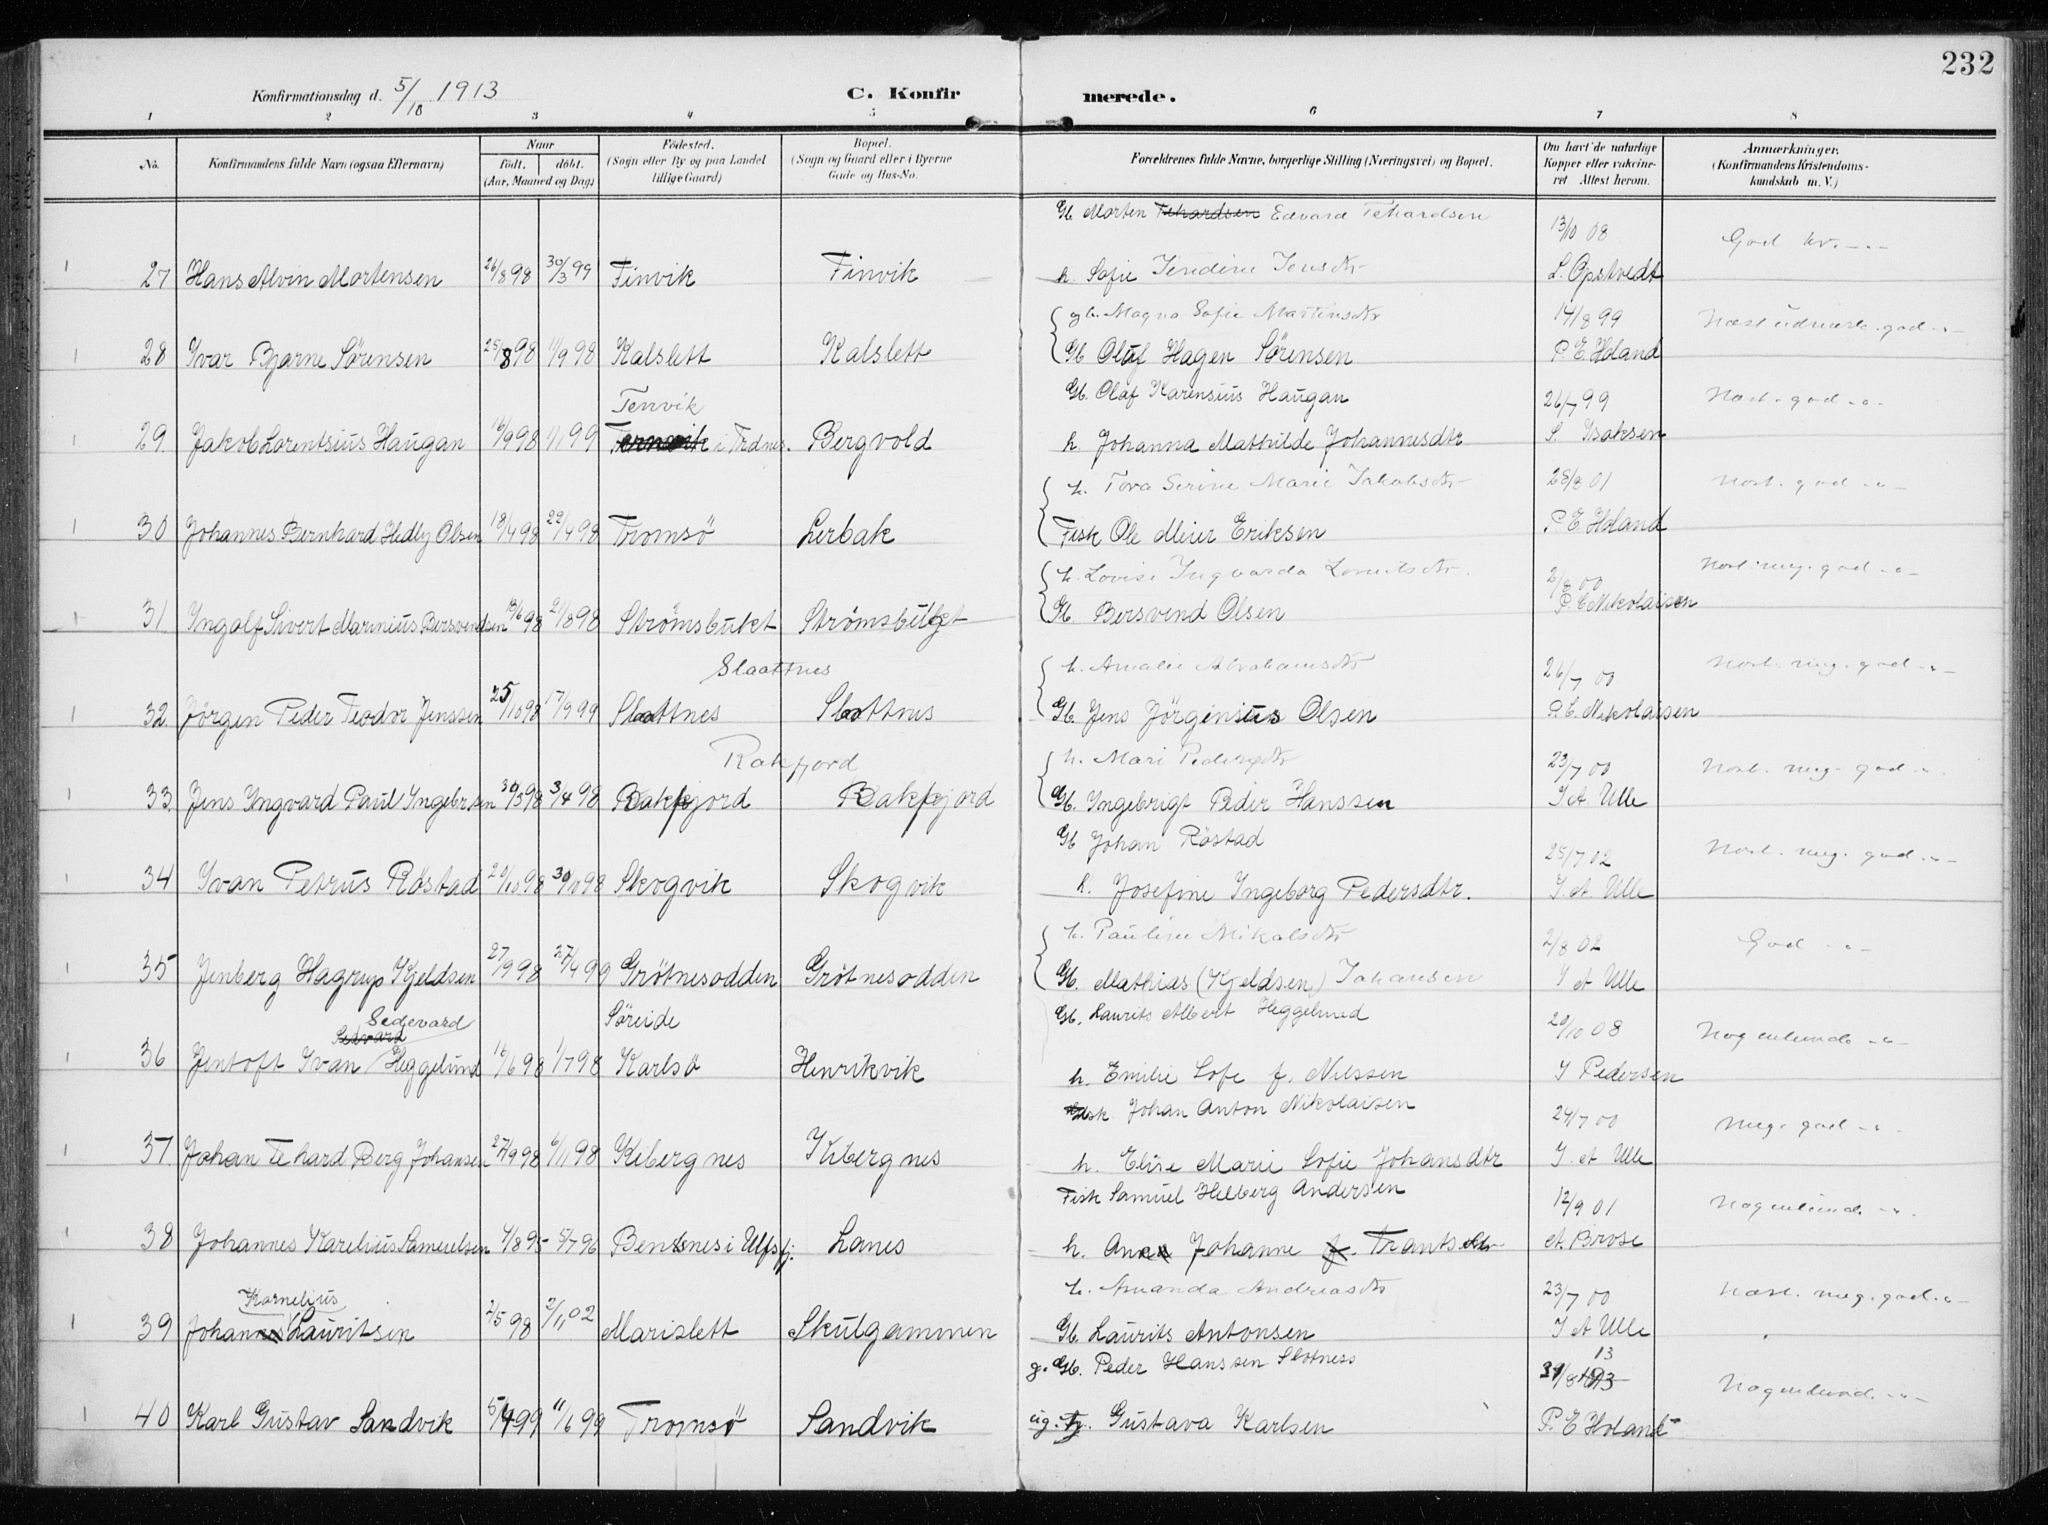 232
Konfirmationsdag d. 5/10 1913
C. Konfirmerede.
1 2 3 4 5 6 7 8
No.
Konfirmandens fulde Navn (ogsaa Efternavn)
Naar
født. døbt.
(Aar, Maaned og Dag)
Fødested.
(Sogn eller By og paa Landet
tillige Gaard)
Bopæl.
(Sogn og Gaard eller i Byerne
Gade og Hus-No.
Forældrenes fulde Navne, borgerlige Stilling (Næringsvei) og Bopæl.
Om havt de naturlige
Kopper eller vakcineret
Attest herom.
Anmærkninger.
(Konfirmandens Kristendomskundskab
m. V.)
Gb Morten Edvard Tehardsen 13/10 08 God kv.
1 27 Hans Alvin Mortensen 26/8 98 30/3 99 Finvik Finvik h. Sofie Jensdtr L. Opstvedt
Magna Sofie Martinsdtr 14/8 99
1 28 Ivar Bjarne Sørensen 25/8 98 11/9 98 Kalslett Kalslett Gb Olaf Hagen Sørensen P. E. Holand
Tenvik Gb. Olaf Karensius Haugan 26/7 99
1 29 Jakob Lorentsius Haugan 16/9 98 1/1 99 i Trdnes. Bergvold h. Johanna Mathilde Johannesdtr S. Isaksen
h. Tova Serine Marie Jakobsdtr 28/8 01
1 30 Johannes Bernhard Hedly Olsen 18/4 98 22/4 98 Tromsö Lerbak Fisk Ole Meier Eriksen P. E Holand
h. Lovise Ingvarda 2/8 00
1 31 Ingolf Sivert Marinius Bersvendsen 13/6 98 21/8 98 Strömsbukt Strömsbugt Gb Bersvend Olsen P. E Nikolaisen
Slaattnes h. Amalie Abrahamsdtr 26/7 00
1 32 Jörgen Peder Teodor Jenssen 25/10 98 17/9 99 Slottnes Slottnes Gb. Jens Jörginius Olsen P. E. Nikolaisen
Rakfjord h. Mari Pedersdtr 23/7 00
1 33 Jens Ingvard Paul Ingebr.sen 98 3/4 98 Rakfjord Rakfjord Gb. Ingebrigt Peder Hanssen Ulle
Gb Johan Röstad 25/7 02
1 34 Ivan Petrus Röstad 98 30/10 98 Skogvik Skogvik h. Josefine Ingeborg Pedersdtr. Ulle
h. Pauline Mikalsdtr 2/8 02 God
1 35 Jenberg Hagrup Kjeldsen 27/9 98 27/4 99 Grötnesodden Grötnesodden Gb. Mathias (Kjeldsen) Johansen Ulle
Sedevard Söreide Gb. Laurits Albert Heggelund 20/10 08
1 36 Jentoft Ivan Heggelund 16/6 98 1/7 98 Karlsö Henrikvik h. Emilie Sofe f. Nilssen J Pedersen
Johan Anton Nikolaisen 24/7 00 meg. god
1 37. Johan Tehard Berg Johansen 27/9 98 6/11 98 Kibergnes Kibergnes h. Elise Marie Sofie Johansdtr Ulle
Fisk Samuel Hilberg Andersen 12/9 01
1 38 Johannes Karelius Samuelsen 4/8 95 5/7 96 Bentsnes i Ulfsfj. Lanes h. Johanne Brose
Kornelius h. Amanda Andreasdtr 23/7 00
1 39 Johan Lauritsen 2/5 98 2/11 02 Marislett Skulgammen Gb. Laurits Antonsen Ulle
g. Gb. Peder Hanssen Slotness 13
1 40 Karl Gustav Sandvik 99 11/6 99 Tromsö Sandvik ug. Gustava Karlsen P. E Holand